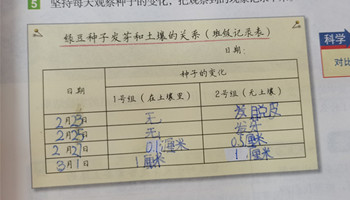 5 坚持每天观察种子的变化，把观察到的现象记录下来。
绿豆种子发芽和土壤的关系（班级记录表）
日期：
日期 种子的变化
1号组（在土壤里） 2号组（无土壤）
2月23日 无 发脱皮
2月25日 无 发芽
2月27日 0.1厘米 0.5厘米
3月1日 1厘米 1厘米
科学
对比